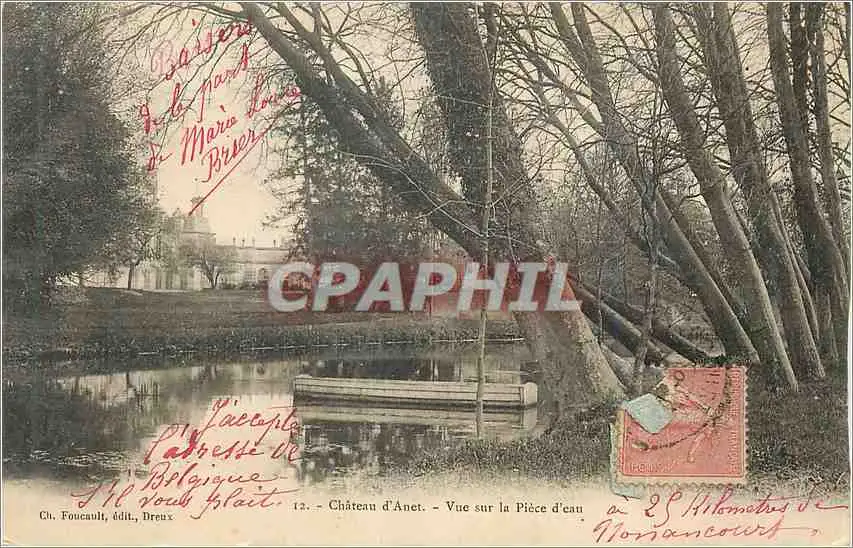 Baisers
de la part
de Marie Louise
Brier
CPAPHIL
J'accepte
l'adresse de
Belgique
S'il vous plait.
12. - Château d'Anet. - Vue sur la Pièce d'eau
Ch. Foucault, édit., Dreux
à 25 Kilometres de
Nonancourt